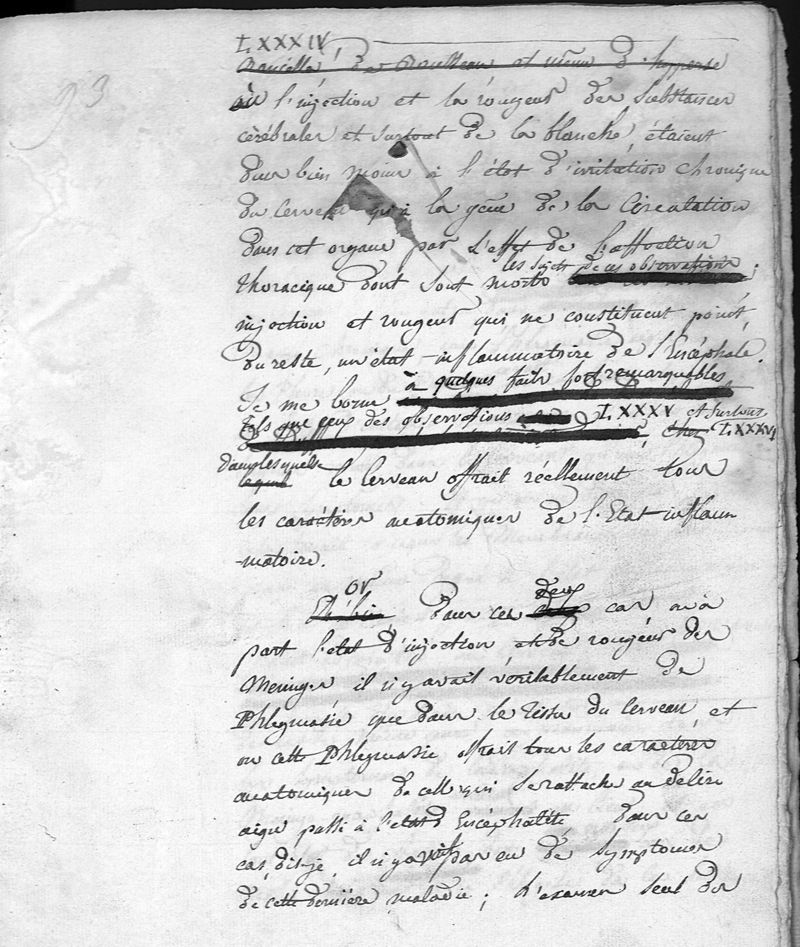 93
LXXXIV,
Nancelle, de Rousseau et même d'
où l'injection et la rougeur des substances
cérébrales et surtout de la blanche, étaient
dues bien moins à l'état d'irritation chronique
du cerveau qu'à la gêne de la Circulation
dans cet organe par l'effet de l'affection
les sujets de ces observations
thoracique dont sont morts ;
injection et rougeur qui ne constituent point,
du reste, un état inflammatoire de l'Encéphale.
à quelques faits fort remarquables
Je me borne
tels que ceux des observations LXXXV et surtout
LXXXVI
dans lesquelles
lequel le Cerveau offrait réellement tous
les caractères anatomiques de l'Etat inflam
-matoire.
or deux
dans ces cas où à
part l'etat d'injection et de rougeur des
Meninges il n'y avait véritablement de
Phlegmasie que dans le tissu du Cerveau, et
où cette Phlegmasie offrait tous les caractères
anatomiques de celle qui se rattache au délire
aigu passé à l'etat d'Encéphalite dans ces
cas, dis-je, il n'y avait pas eu de symptomes
de cette dernière maladie ; l'examen seul des